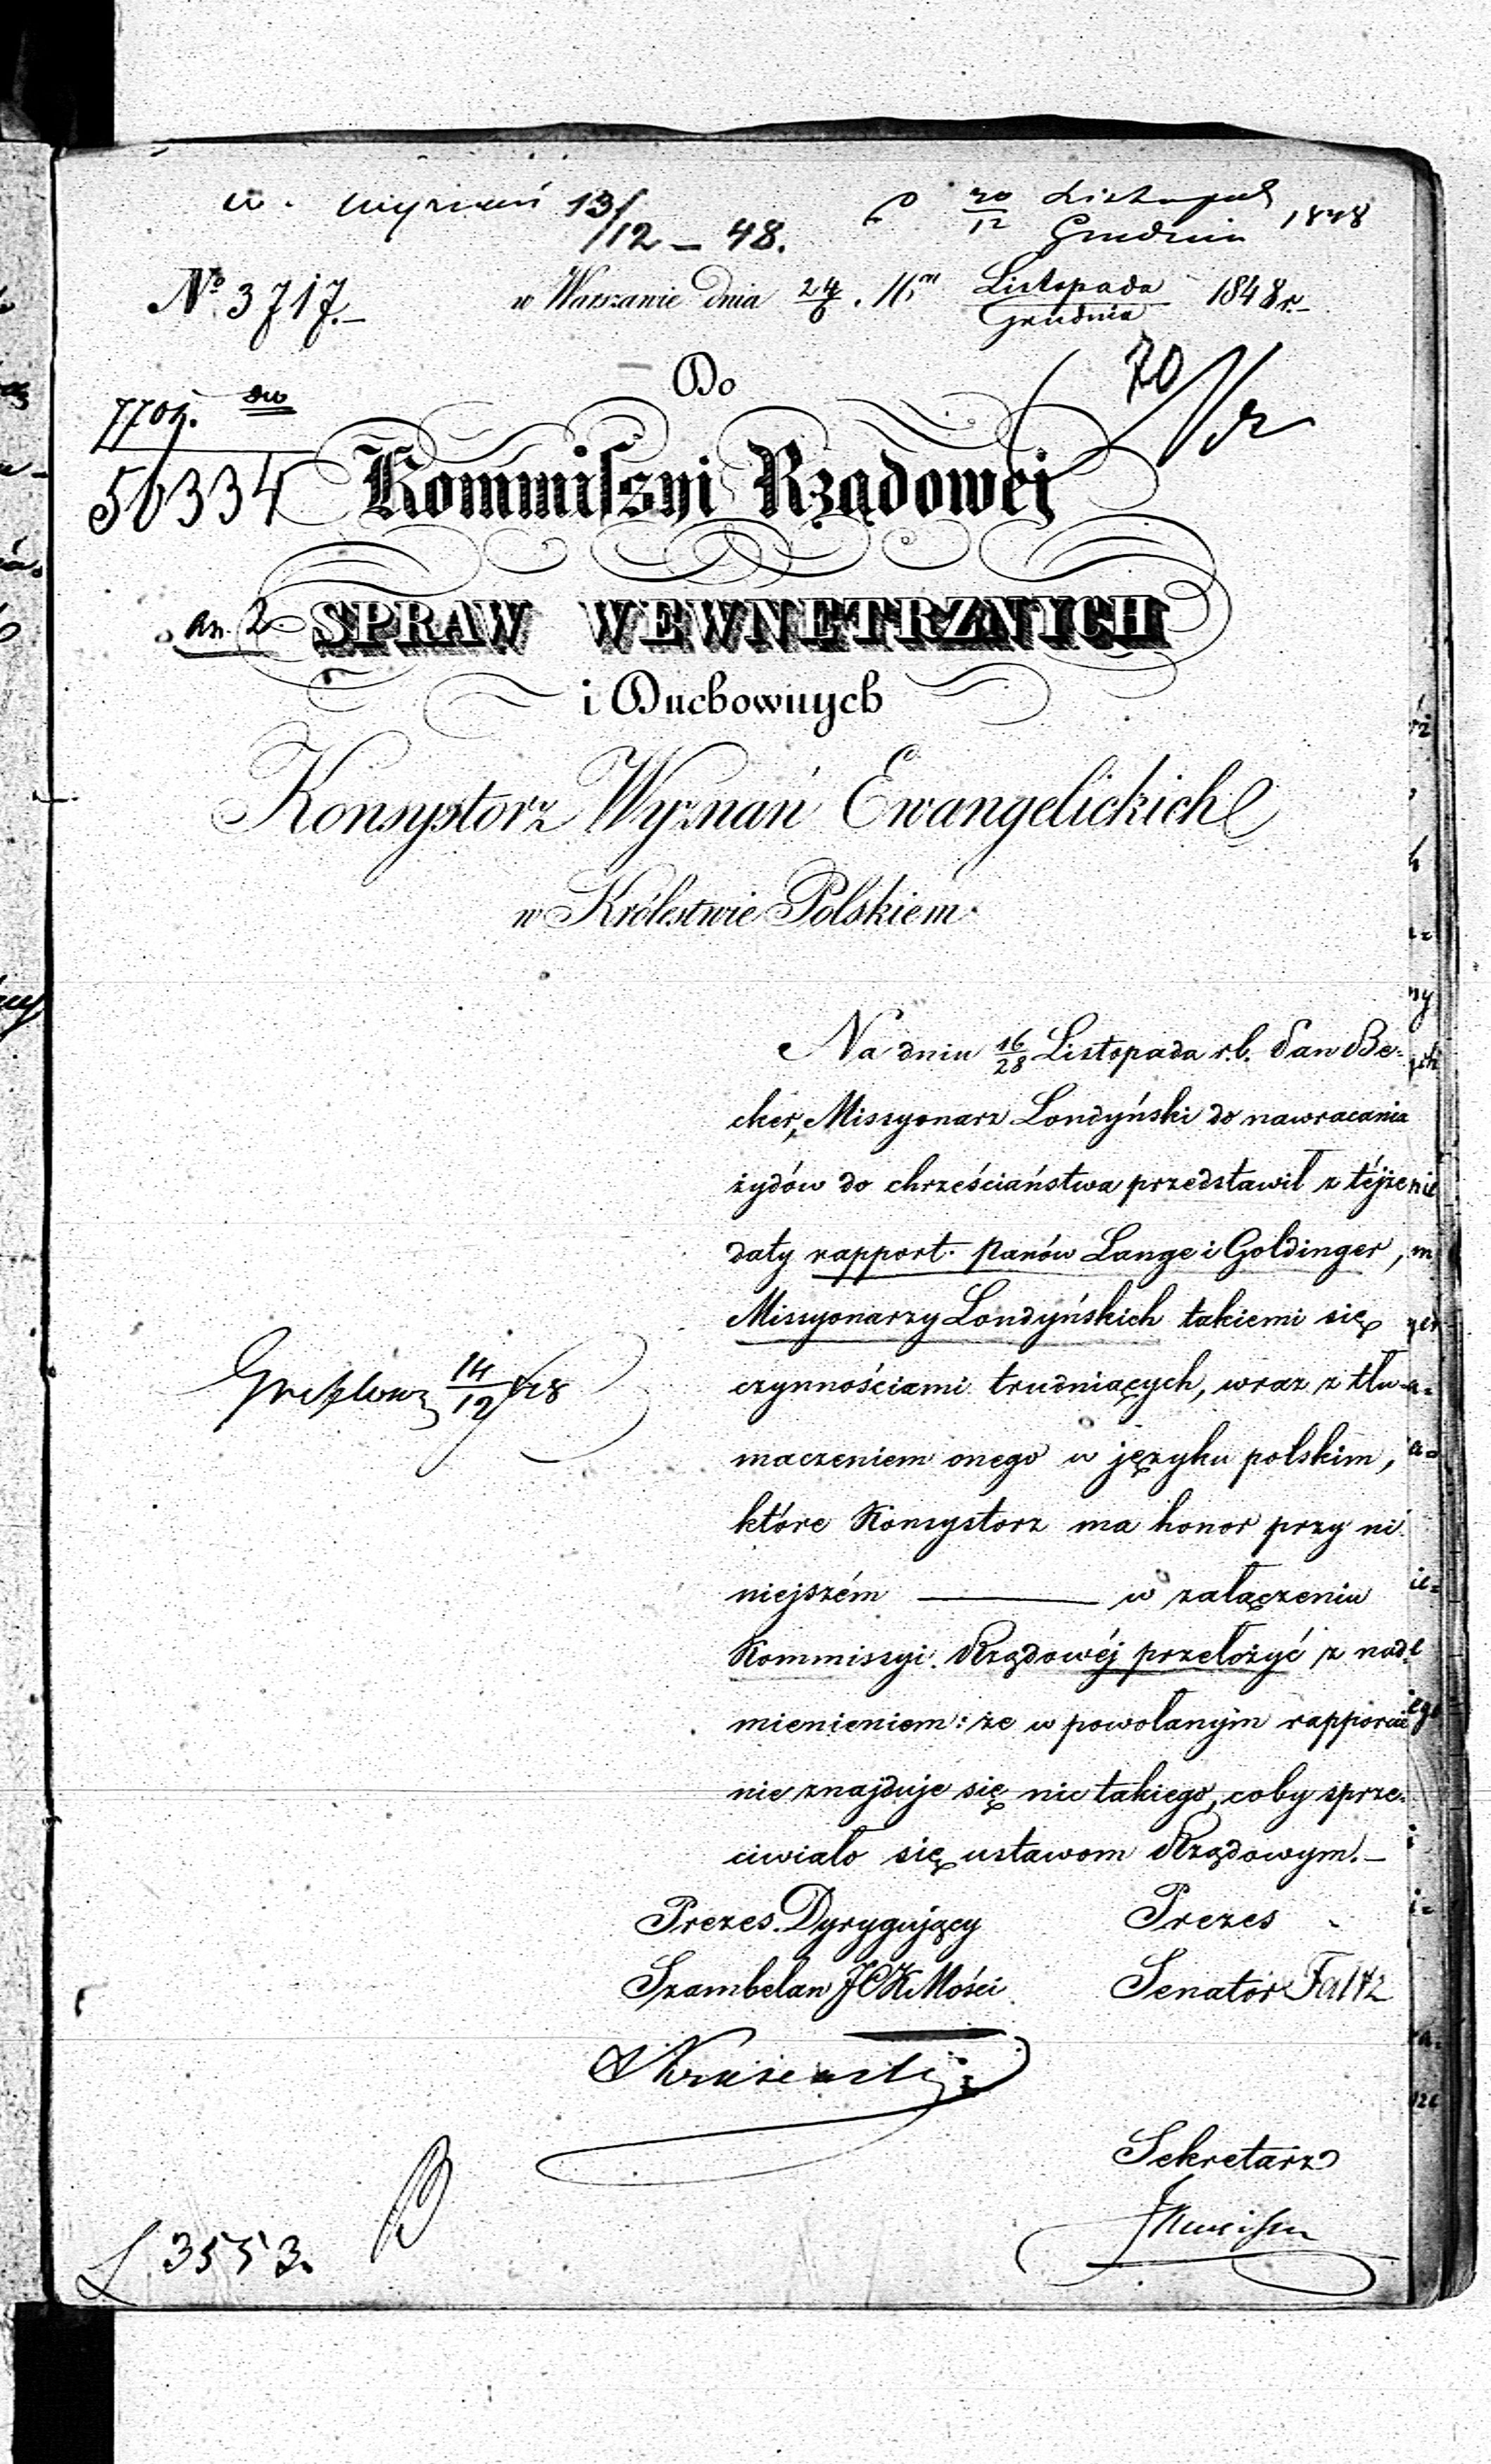 w. wyznań 13/12 – 48. 30/12 Listopad/Grudnia 1848
No 3717.– w Warszawie dnia 24/6 . Listopada/Grudnia 1848 r.–
Do
70
7709.
56334
Kommissyi Rządowej
an. 2.
SPRAW WEWNETRZNYCH
i Duchownych
Konsystorz Wyznań Ewangelickich
w Królestwie Polskiem.
Na dniu 16/28 Listopada r.b. Pan Be-
cker, Missyonarz Londyński do nawracania
żydów do chrześciaństwa przedstawił z téjże
daty rapport Panów Lange i Goldinger,
Missyonarzy Londyńskich takiemi się
czynnościami trudniących, wraz z tłu-
14/12 48
maczeniem onego w języku polskim,
które Konsystorz ma honor przy ni
niejszém ——— w załączeniu
Kommissyi Rządowéj przełożyć z nad-
mienieniem: że w powołanym rapporcie
nie znajduje się nic takiego, coby sprze-
ciwiało się ustawom Rządowym.–
Prezes Dyrygujący Prezes
Szambelan JCK Mości Senator Faltz
Sekretarz
3553.